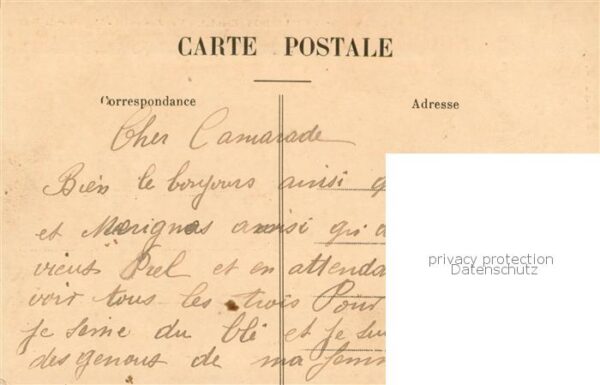 CARTE POSTALE
Correspondance
Adresse
Cher Camarade
Bien le bonjours ainsi q
et Marignas ainsi qu'a
vieux Prel et en attenda
voir tous les trois Pour
je seme du blé et je sui
des genous de ma femm
privacy protection
Datenschutz